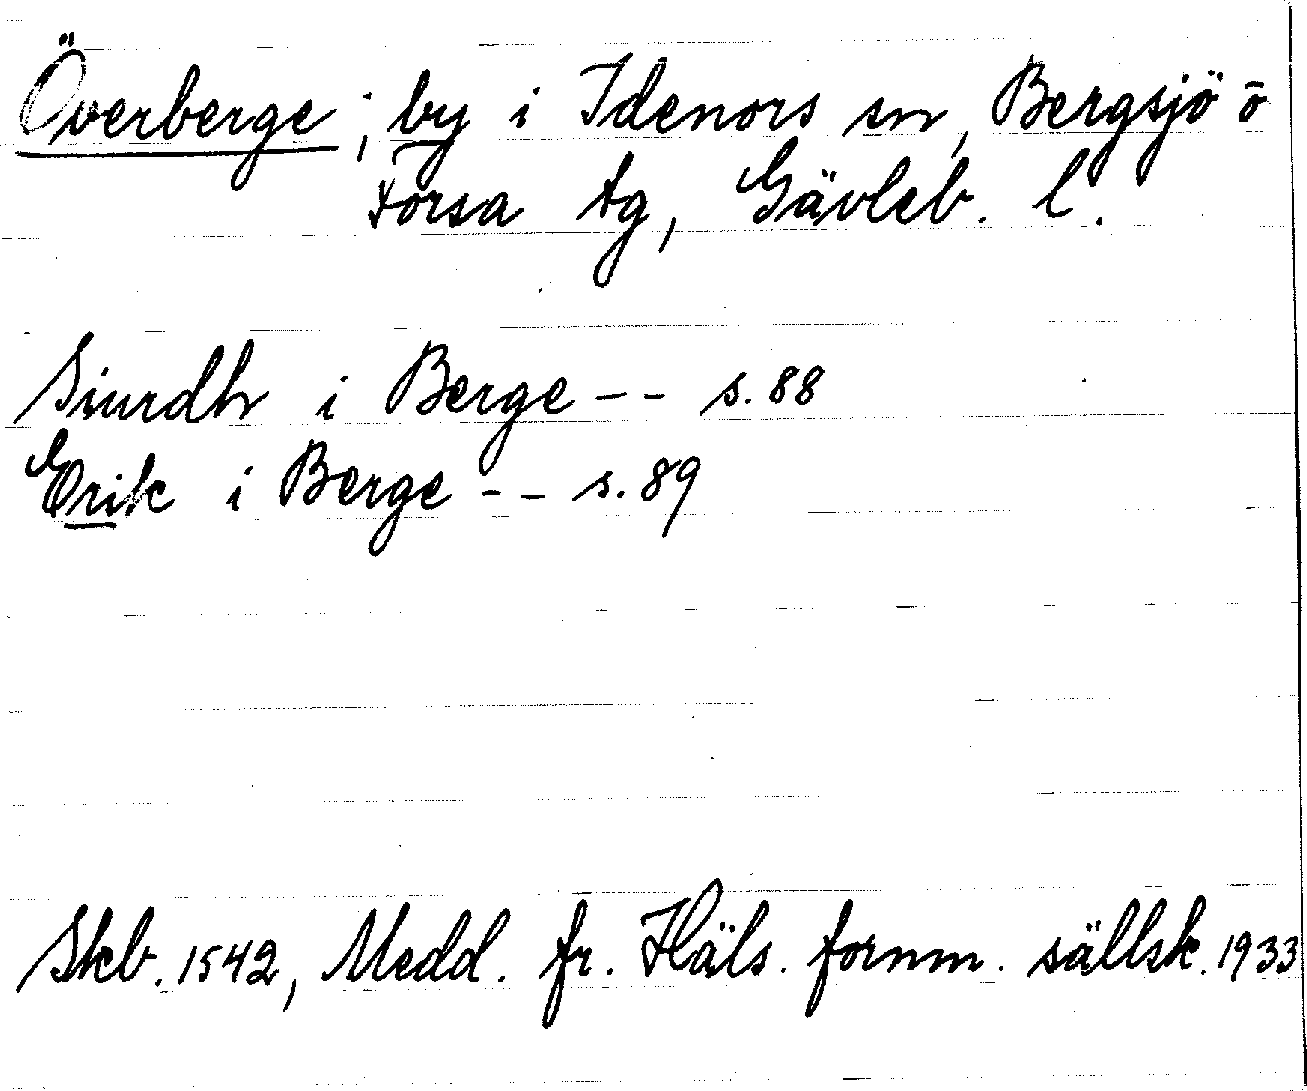 Överberge; by i Idenors sn, Bergsjö o
Forsa tg, Gävleb. l.
Siurdh i Berge -- s. 88
Erik i Berge -- s. 89
Skb. 1542, Medd. fr. Häls. fornm. sällsk. 1933